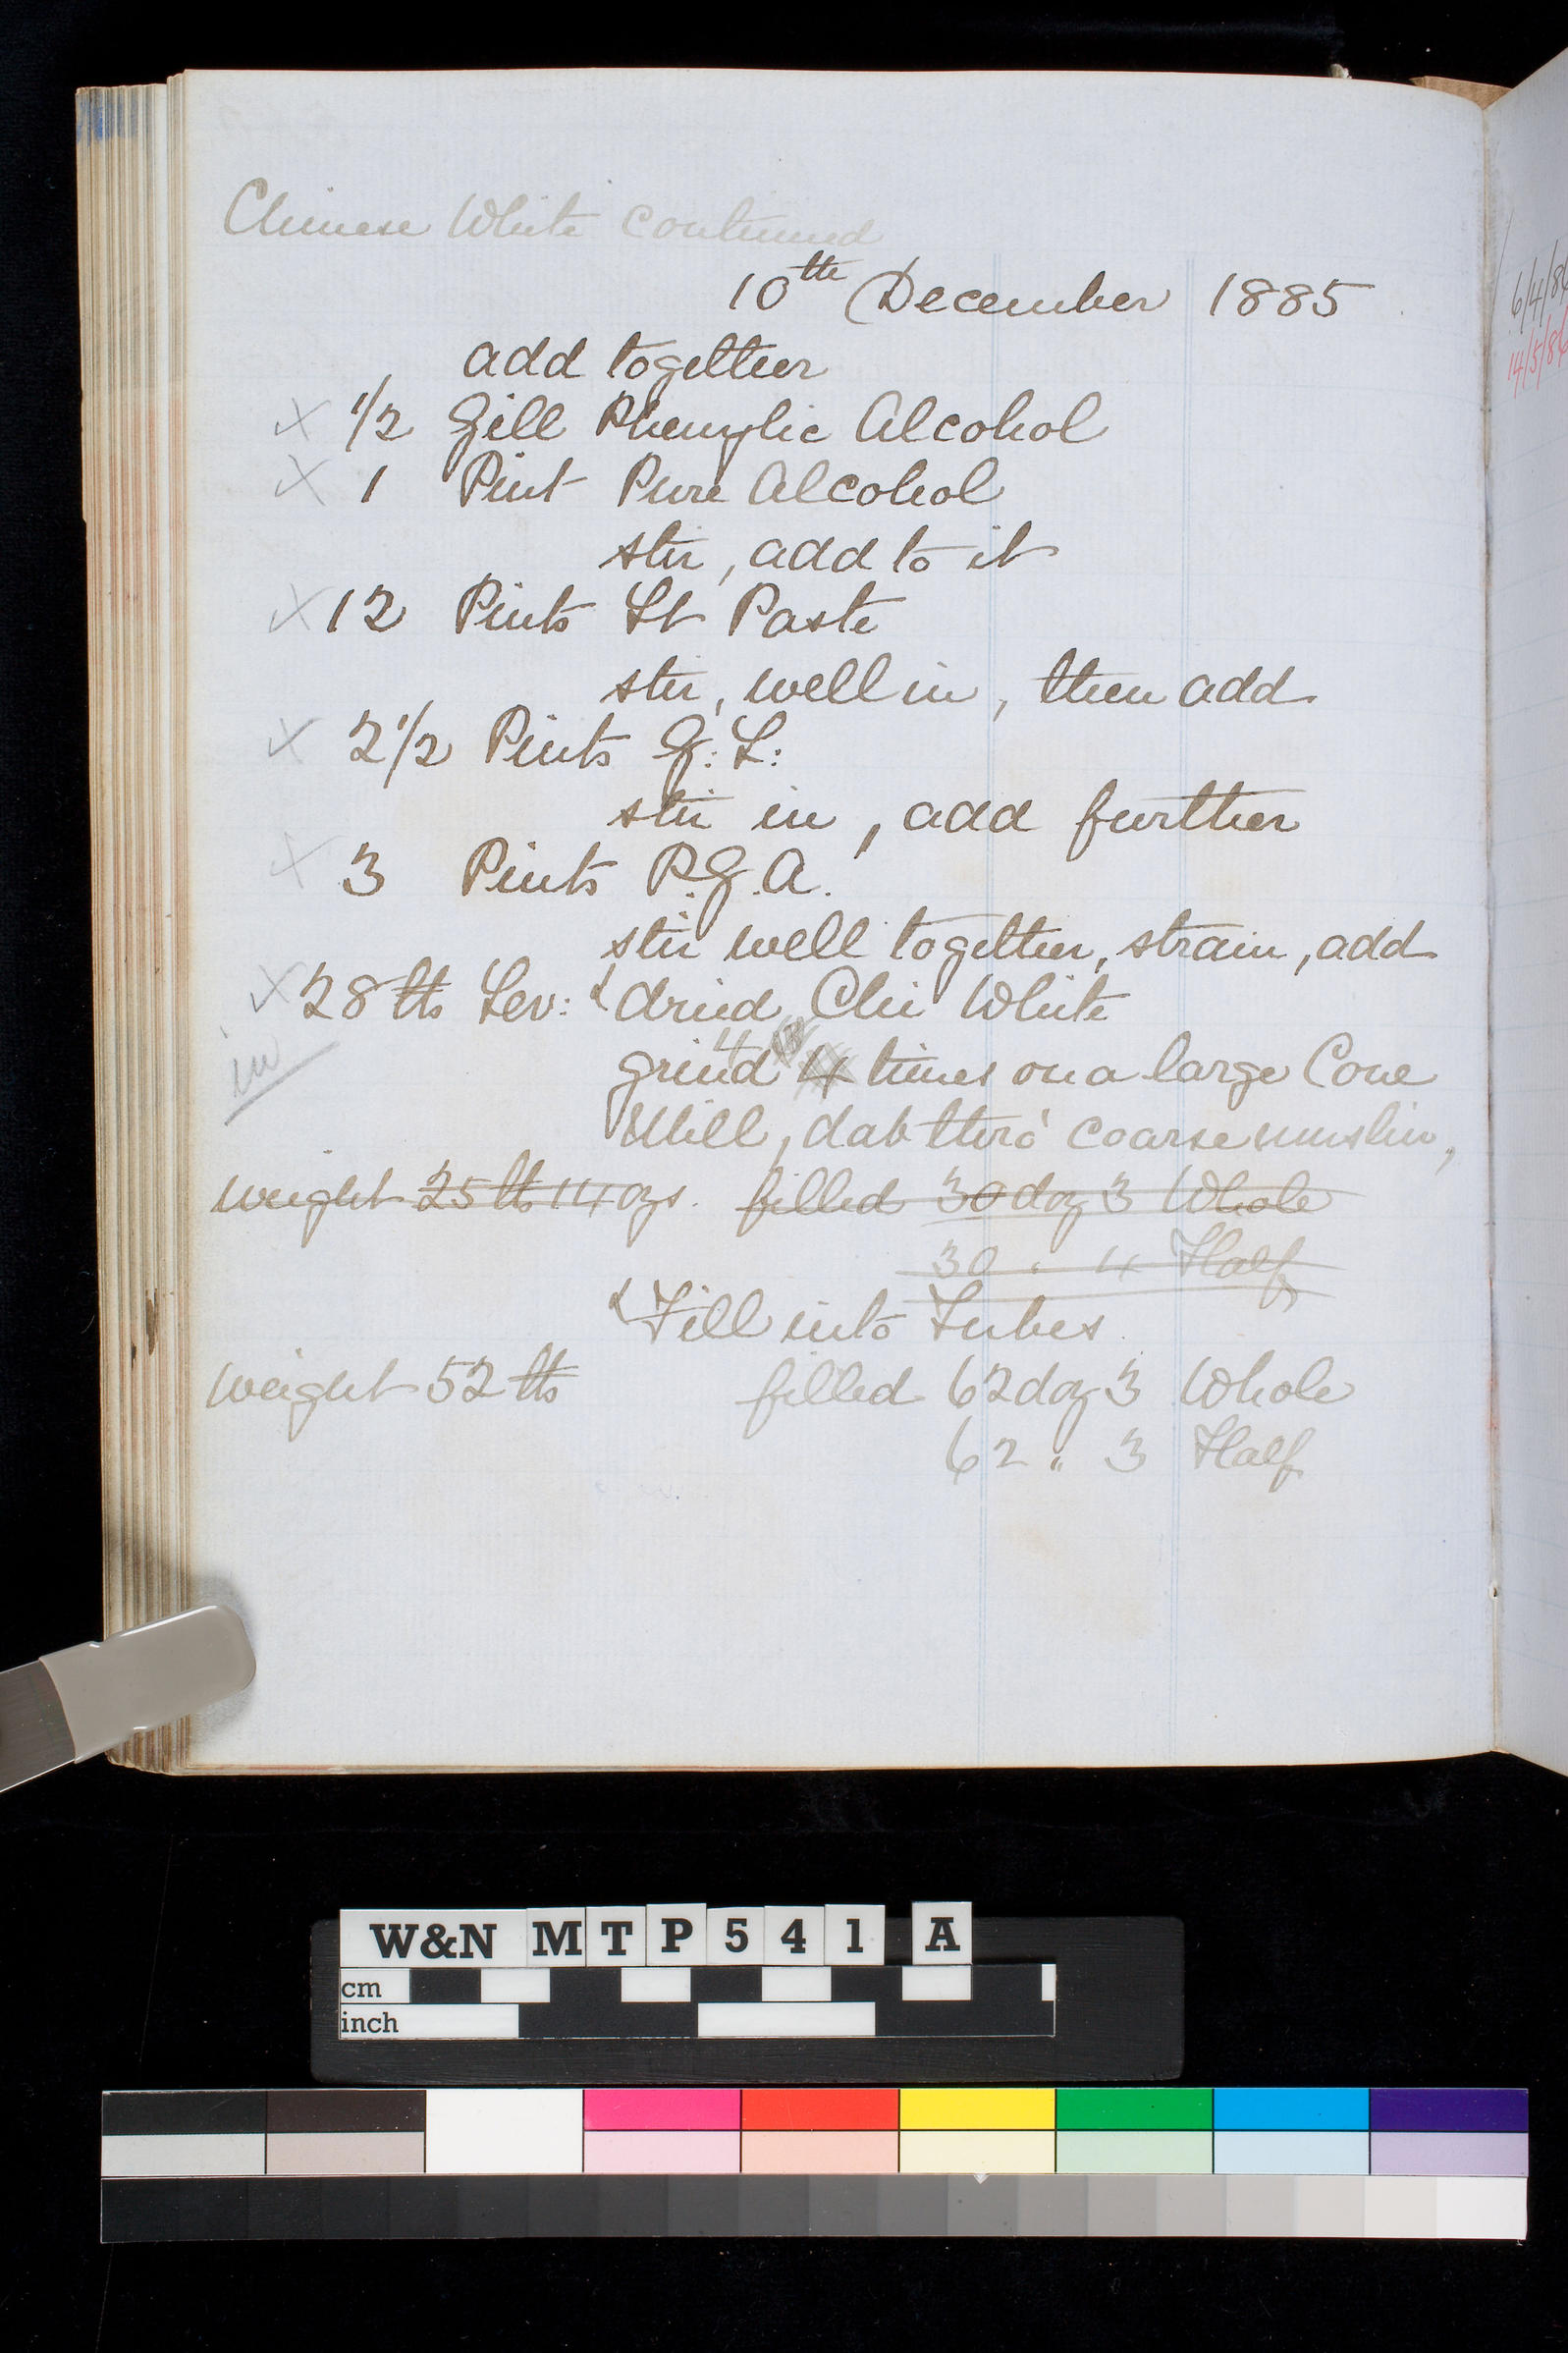 Chinese White continued
10th December 1885
add together
1/2 Gill Phenylic Alcohol
1 Pint Pure Alcohol
stir, add to it
12 Pints St Paste
stir, well in, then add
2 1/2 Pints G: L:
stir in, add further
3 Pints P.G.A.
stir well together, strain, add
28 lbs Lev: & dried Chi White
in
4
grind 4 times on a large Cone
Mill, dab thro' coarse muslin,
Weight 25 lb 14 ozs. filled 30 doz 3 Whole
30 " 4 Half
& Fill into Tubes.
Weight 52 lbs filled 62 doz 3 Whole
62 " 3 Half
6/4/86
14/5/86
W&N MTP541 A
cm
inch